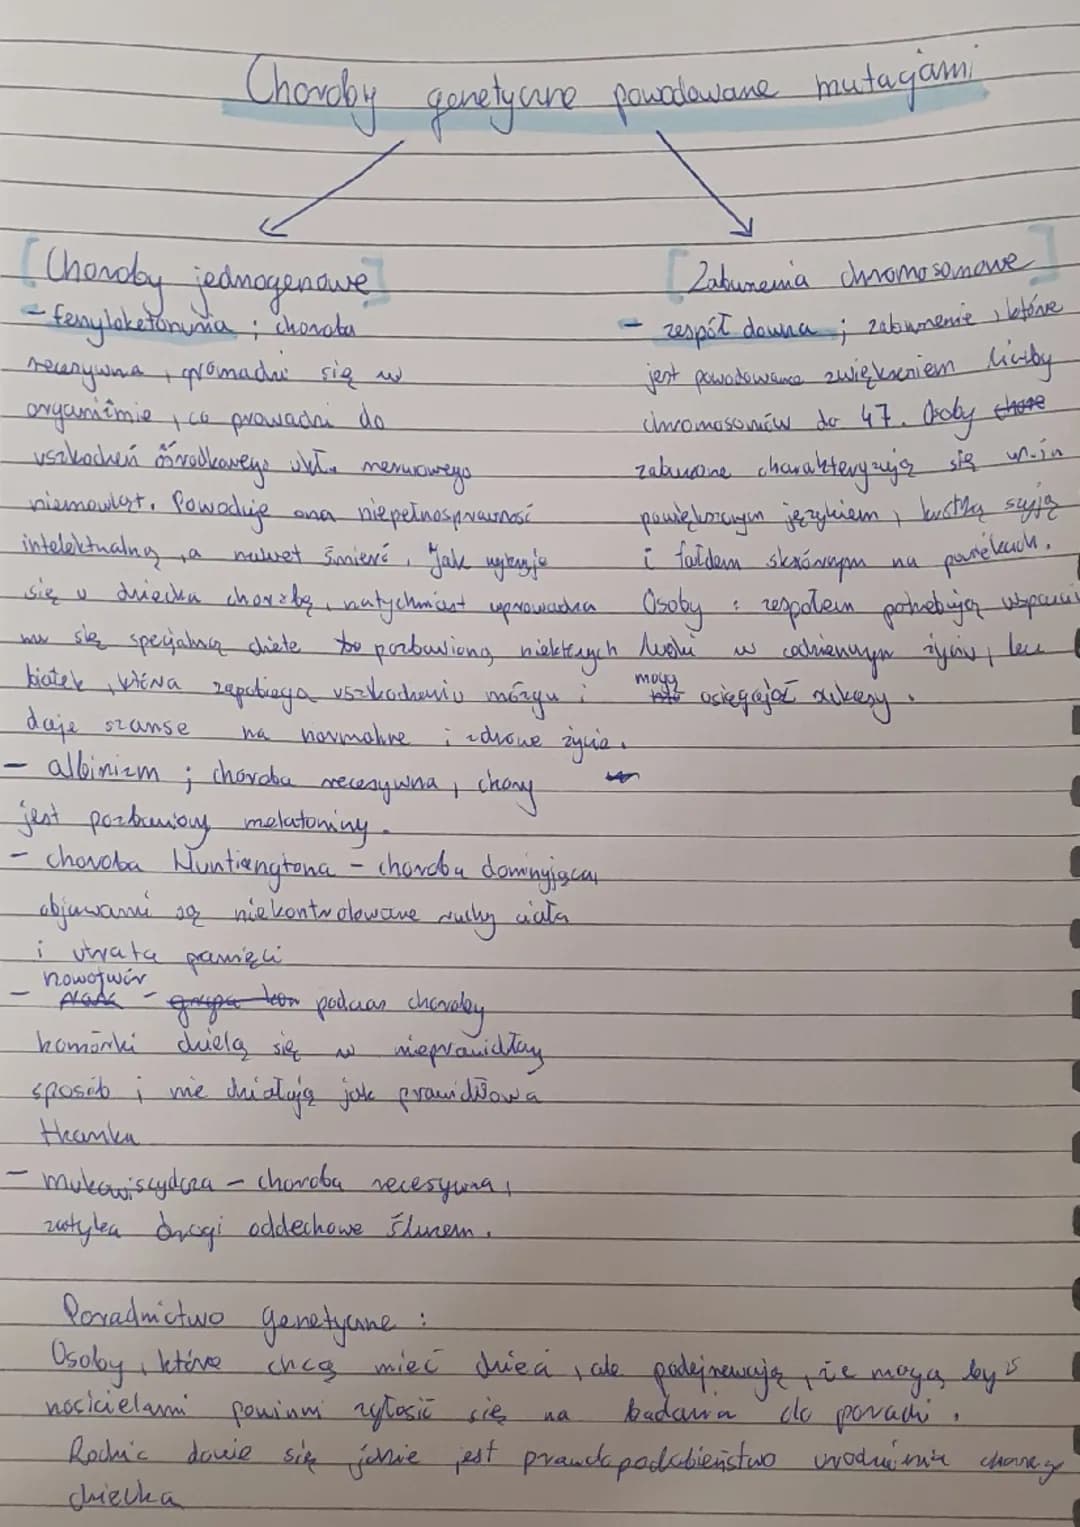 Choroby genetyczne powodowane mutacjami
[Choroby jednogenowe]
- fenyloketonuria ; choroba
recesywna , gromadzi się w
organiźmie , co prowadzi do
uszkodzeń ośrodkowego ukł. nerwowego
niemowląt. Powoduje ona niepełnosprawność
intelektualną , a nawet śmierć . Jak wykryje
się u dziecka chorobę , natychmiast wprowadza
mu się specjalną diete pozbawioną niektórych
białek , która zapobiega uszkodzeniu mózgu i
daje szanse na normalne i zdrowe życie .
- albinizm ; choroba recesywna , chory
jest pozbawiony melatoniny .
- choroba Huntiengtona - choroba dominująca,
objawami są niekontrolowane ruchy ciała
i utrata pamięci
- nowotwór - podczas choroby
komórki dzielą się w nieprawidłowy
sposób i nie działają jak prawidłowa
tkanka
- mukowiscydoza - choroba recesywna ,
zatyka drogi oddechowe śluzem .
[Zaburzenia chromosomowe]
- zespół downa ; zaburzenie , które
jest powodowane zwiększeniem liczby
chromosomów do 47. Osoby chore
zaburzone charakteryzują się m.in
powiększonym językiem , krótką szyją
i fałdem skórnym na powiekach .
Osoby z zespołem potrzebują wsparcia
ludzi w codziennym życiu , lecz
mogą osięgająć sukcesy .
Poradnictwo genetyczne :
Osoby , które chcą mieć dzieci , ale podejrzewają , że mogą być
nosicielami powinni zgłosić się na badania do poradni .
Rodzic dowie się jakie jest prawdopodobieństwo urodzenia chorego
dziecka